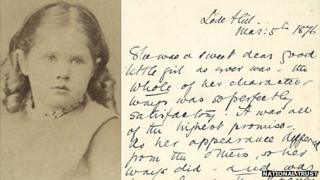 Lode Hill.
Mar: 5th 1876
She was a sweet dear good
little girl as ever was - the
whole of her character &
ways was so perfectly
satisfactory. It was all
of the highest promise -
As her appearance differed
from the others, so her
ways did - and was
NATIONAL TRUST